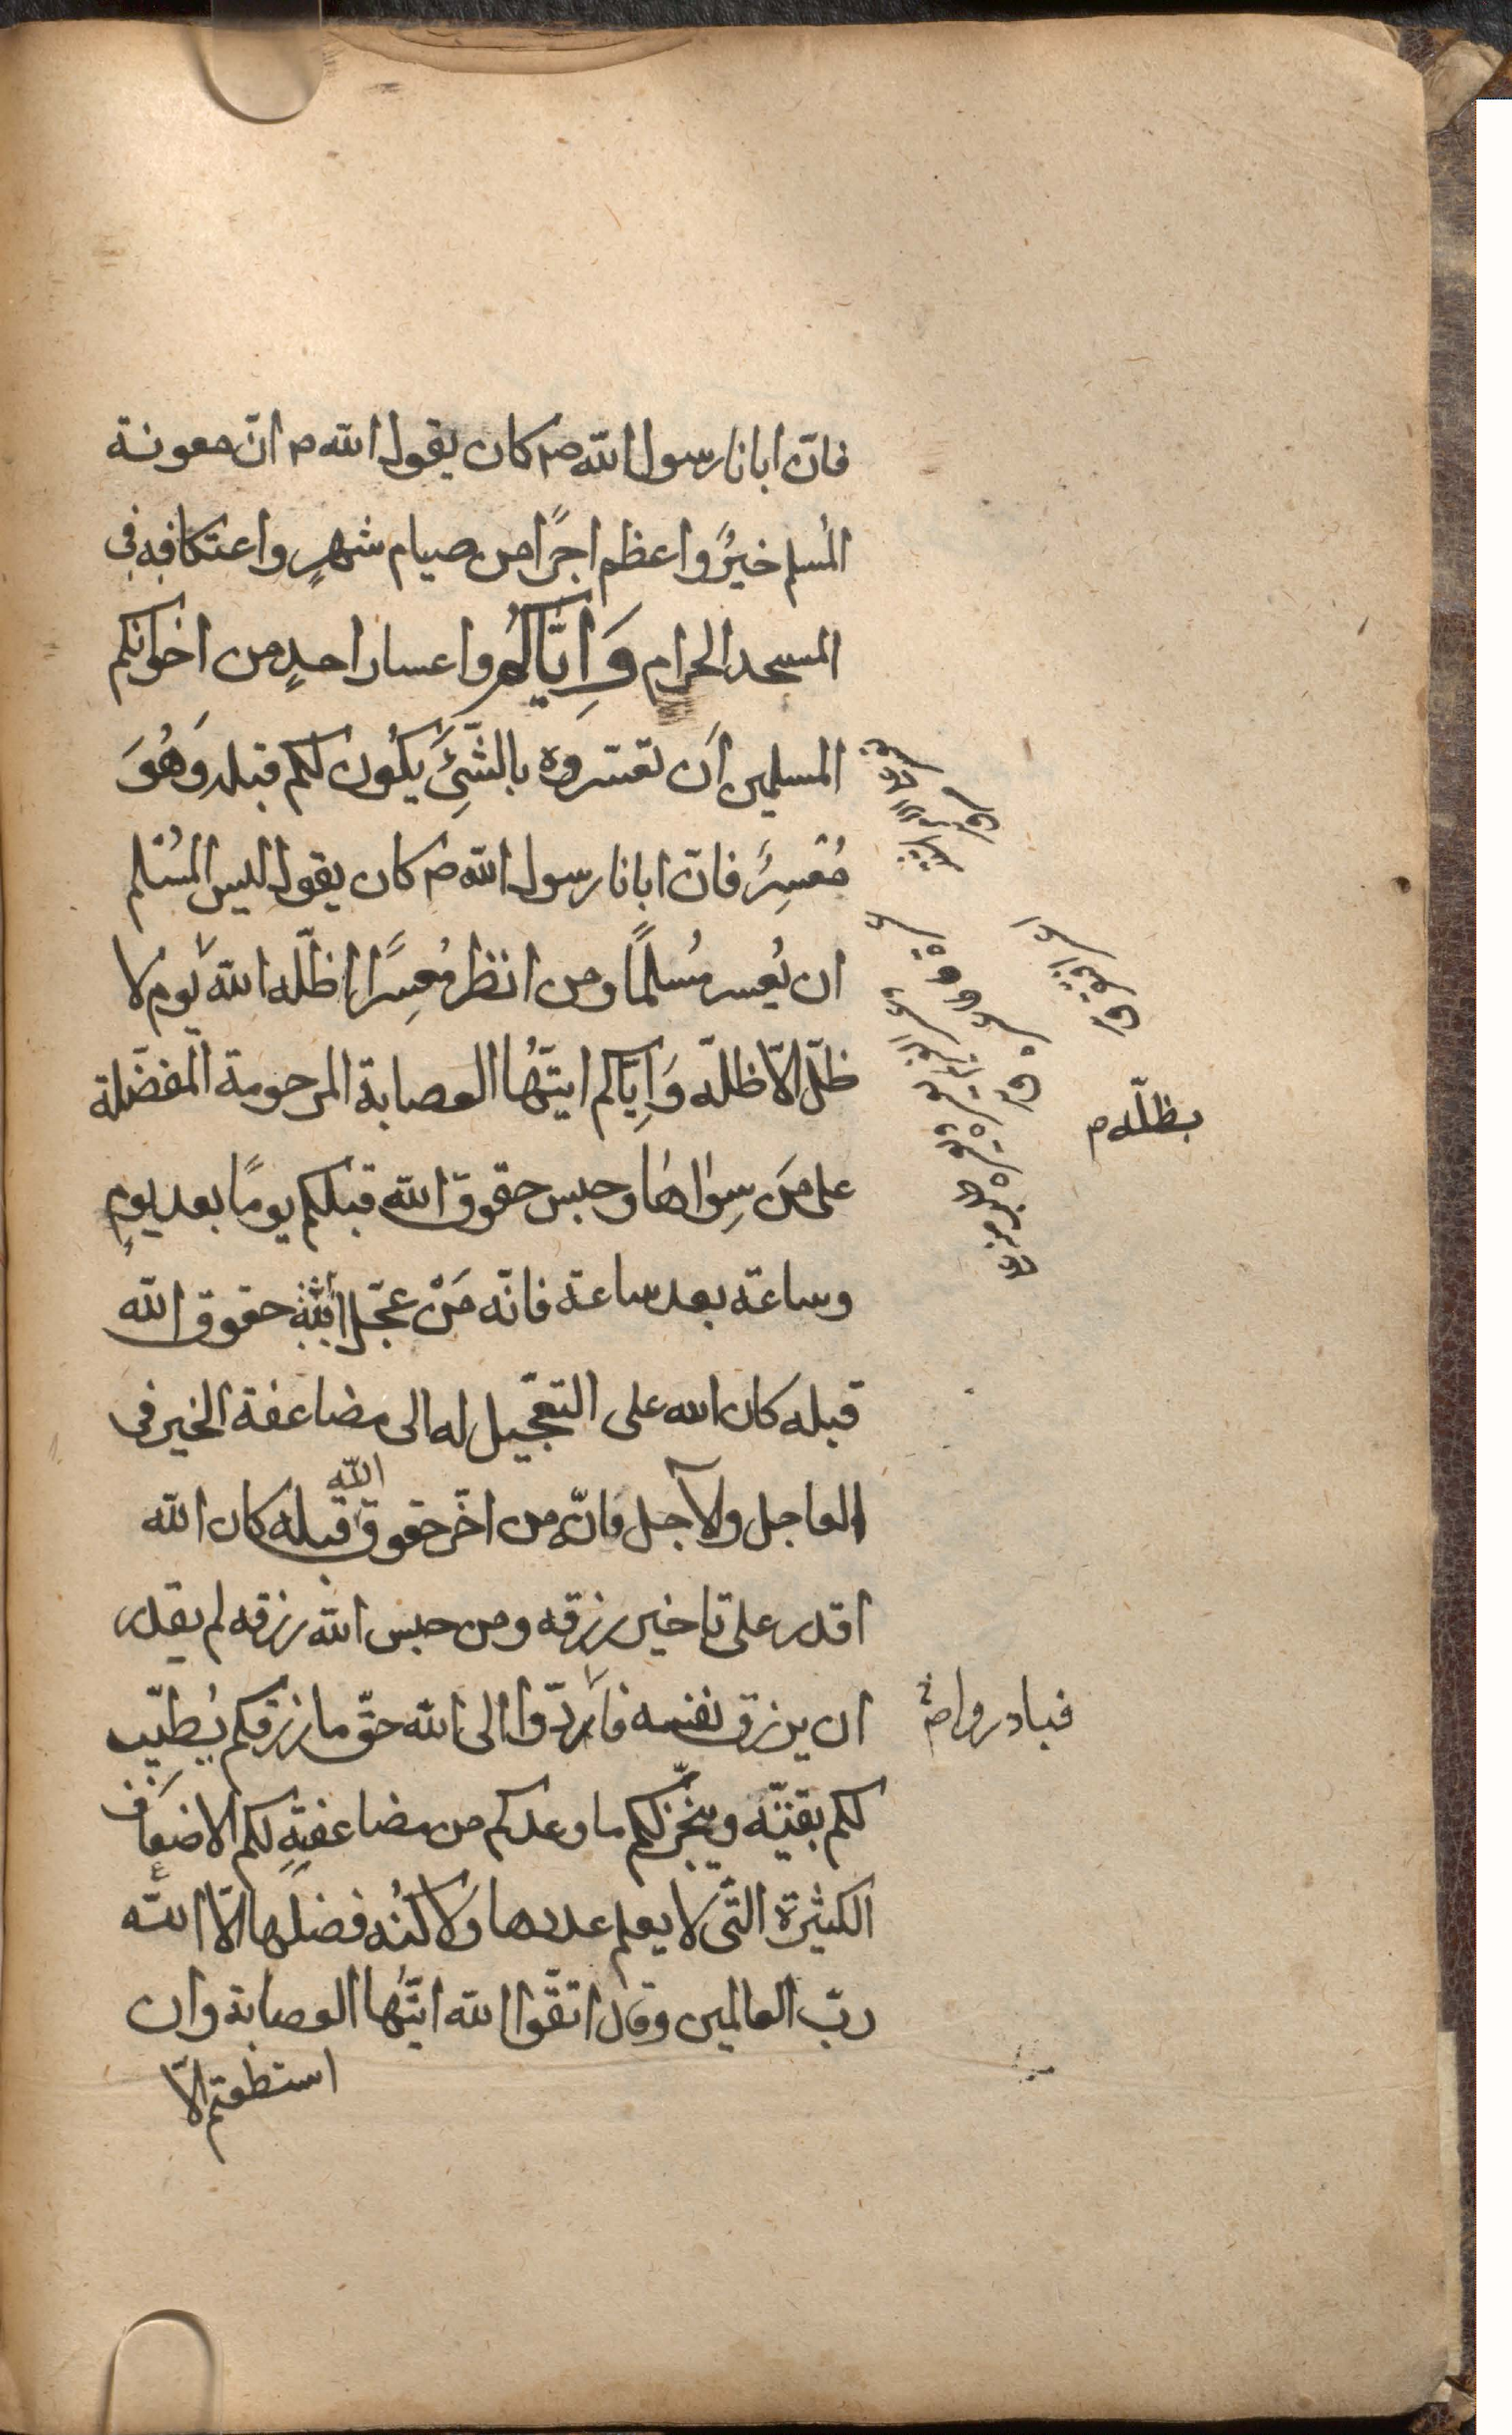 فانّ ابانا رسول الله ص كان يقول الله م انّ معونة
المُسلم خيرٌ واعظم اجرًا من صيام شهرٍ واعتكافه في
المسجد الحرام وَاِيّاكُم واعسار احدٍ من اخوانكم
المسلمين اَن تعسروه بالشّيءِ يكُون لكم قبله وَهُوَ
مُعْسِرٌ فانّ ابانا رسول الله ص كان يقول ليس لمُسْلم
ان يُعسر مُسلمًا ومن انظر مُعسِرًا اظلّه الله يوم لا
ظلّ الّا ظلّه وَاِيّاكم ايّتهُا العصابة المرحومة المفضّلة
على مَن سِواها وحبس حقوق الله قبلكم يومًا بعد يومٍ
وساعة بعد ساعة فانّه مَنْ عجّل حقوق الله
قبله كان الله على التعجّيل له الى مضاعفة الخير في
العاجل والآجل فانّه من اخّر حقوق الله قبله كان الله
اقدر على تاخير رزقه ومن حبس الله رزقه لم يقدر
ان يرزق نفسه فأدّوا الى الله حقّ ما رزقكم يُطيّب
لكم بقيّته وينجّز لكم ما وعدكم من مضاعفتهِ لكم الاضعاف
الكثيرة التّي لا يعلم عددها وَلا كُنْه فضلها الّا الله
ربّ العالمين وقال اتّقوا الله ايّتهُا العصابة وان
استطعتم الّا
بظلّه م
فبادروا